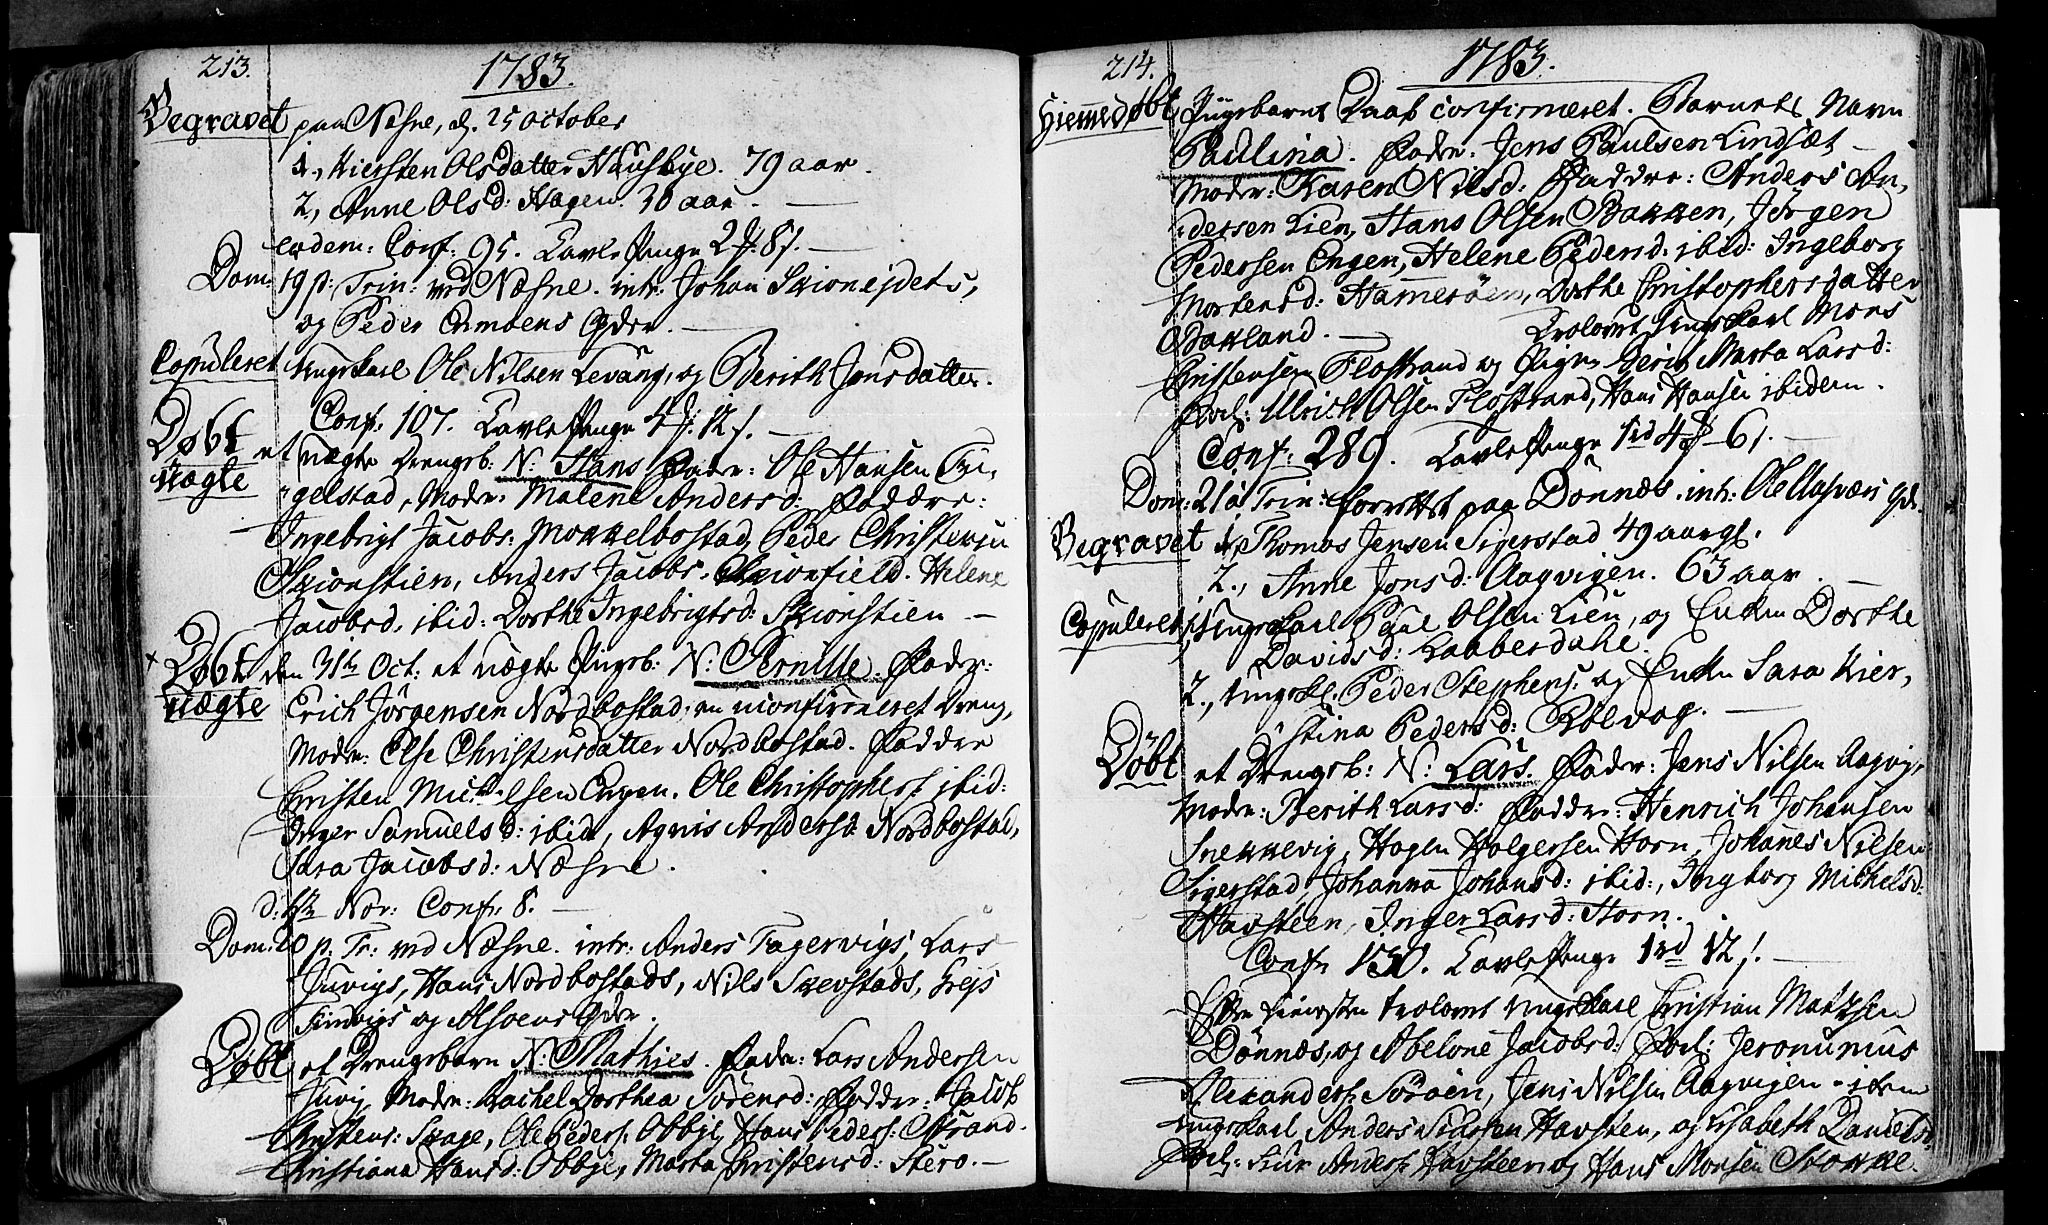 213.
1783.
Begravet paa Næsne, d. 25 October
1, Kiersten Olsdatter Hausbye. 79 aar.
2, Anne Olsd: Hagen. 30 aar.
eodem: Conf: 95. Tavle Penge 2
Dom: 19 p: Trin: ved Næsne. intr: Johan Skionejdets,
og Peder Gdr.
Copuleret Ungkarl Ole Nilsen Levang, og Berith Jonsdatter.
Conf: 107. Tavle Penge
Døbt et uægte Drengb: N: Hans Fader: Ole Hansen
uægte gelstad, Moder: Malene Andersd: Faddere:
Ingebrigt Jacobs: Mokkelbostad, Peder Christensen
Skionstien, Anders Jacobs. Helene
Jacobsd. ibid: Dorthe Ingebrigtsd: Skionstien
Døbt den 31te Oct: et uægte Pigeb: N: Pernille. Fader:
uægte Erich Jörgensen Nordbostad, en uconfirmeret Dreng,
Moder: Else Christensdatter Nordbostad. Faddre
Christen Michelsen Engen. Ole Christophers: ibid:
Inger Samuelsd: ibid, Agnis Andersd: Nordbostad,
Sara Jacobsd: Næsne.
Nov: Conf: 8.
Dom: 20 p. Tr: ved Næsne. intr: Anders Fagervigs, Lars
Juvigs, Hans Nordbostads, Nils Skevstads,
og Alsoens Gdr.
Døbt et Drengebarn N: Mathies. Fader: Lars Andersen
Juvig Moder: Rachel Dorthea Sörensd: Fadder: Jacob
Christens: Skage, Ole Peders: Obbje, Hans Peders: Strand.
Christiana Hansd: Obbje, Marta Christensd: Stero.
214.
1783.
Hiemmedøbt Pigebarns Daab confirmeret. Barnets Navn
Paulina. Fader: Jens Paulsen Lindsæt
Moder: Karen Nilsd: Faddre: Anders An-
dersen Lien, Hans Olsen Bakken, Jörgen
Pedersen Engen, Helene Pedersd: ibid: Ingeborg
Mortensd: Hamerøen, Dorthe Christophersdatter
Bakland. Trolovet Ungkarl Mons
Christensen Flostrand og Pigen Marta Larsd:
Forl: Ulrich Olsen Flostrand, Hans Hansen ibidem.
Conf: 289. Tavle Penge 1rd
Dom: 21 p Trin: forrettet paa Dönnæs. intr: Ole Aasværs Gdr.
Begravet 1, Thomas Jensen Sigerstad 49 aar gl.
2., Anne Jonsd: Aagvigen. 63 aar.
Copuleret 1, Ungkarl Paul Olsen Lien, og Enken Dorthe
Davidsd: Labberdahl.
2., Ungkl. Peder Stephens: og Enken Sara Kier-
stina Pedersd: Rölvog.
Døbt et Drengeb: N: Lars. Fader: Jens Nilsen Aagvig,
Moder: Berith Larsd: Fadder: Henrich Johansen
Snekkevig, Hagen Holgersen Horn, Johanes Nilsen
Sigerstad, Johanna Johansd: ibid:, Ingborg Michelsd:
Havsteen, Inger Larsd: Horn.
Conf: 130. Tavle Penge 1rd 12 s.
trolovet Ungkarl Christian Matzsen
Dönnæs, og Abelone Jacobsd: Forl: Jeronimus
Alexanders: Sörøen, Jens Nilsen Aagvigen. item
Ungkarl Anders Havsten, og Elsabeth Danielsd:
Forl: Siur Anders: Havsteen og Hans Monsen Stokke.